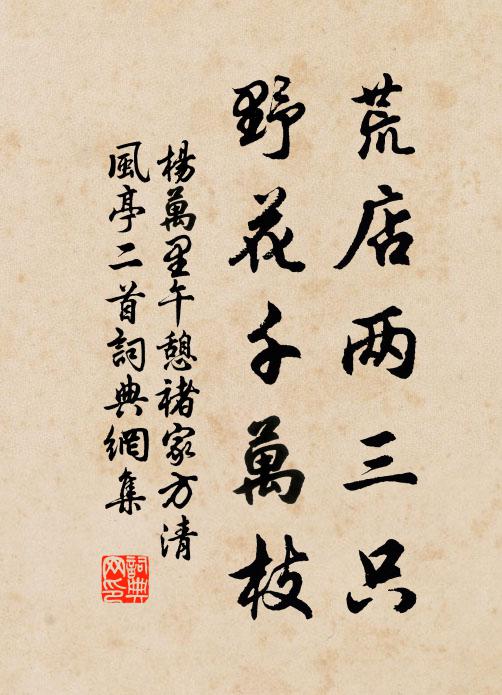 荒店两三只
野花千萬枝
楊萬里午憩褚家方清
風亭二首詞典網集
詞典网印